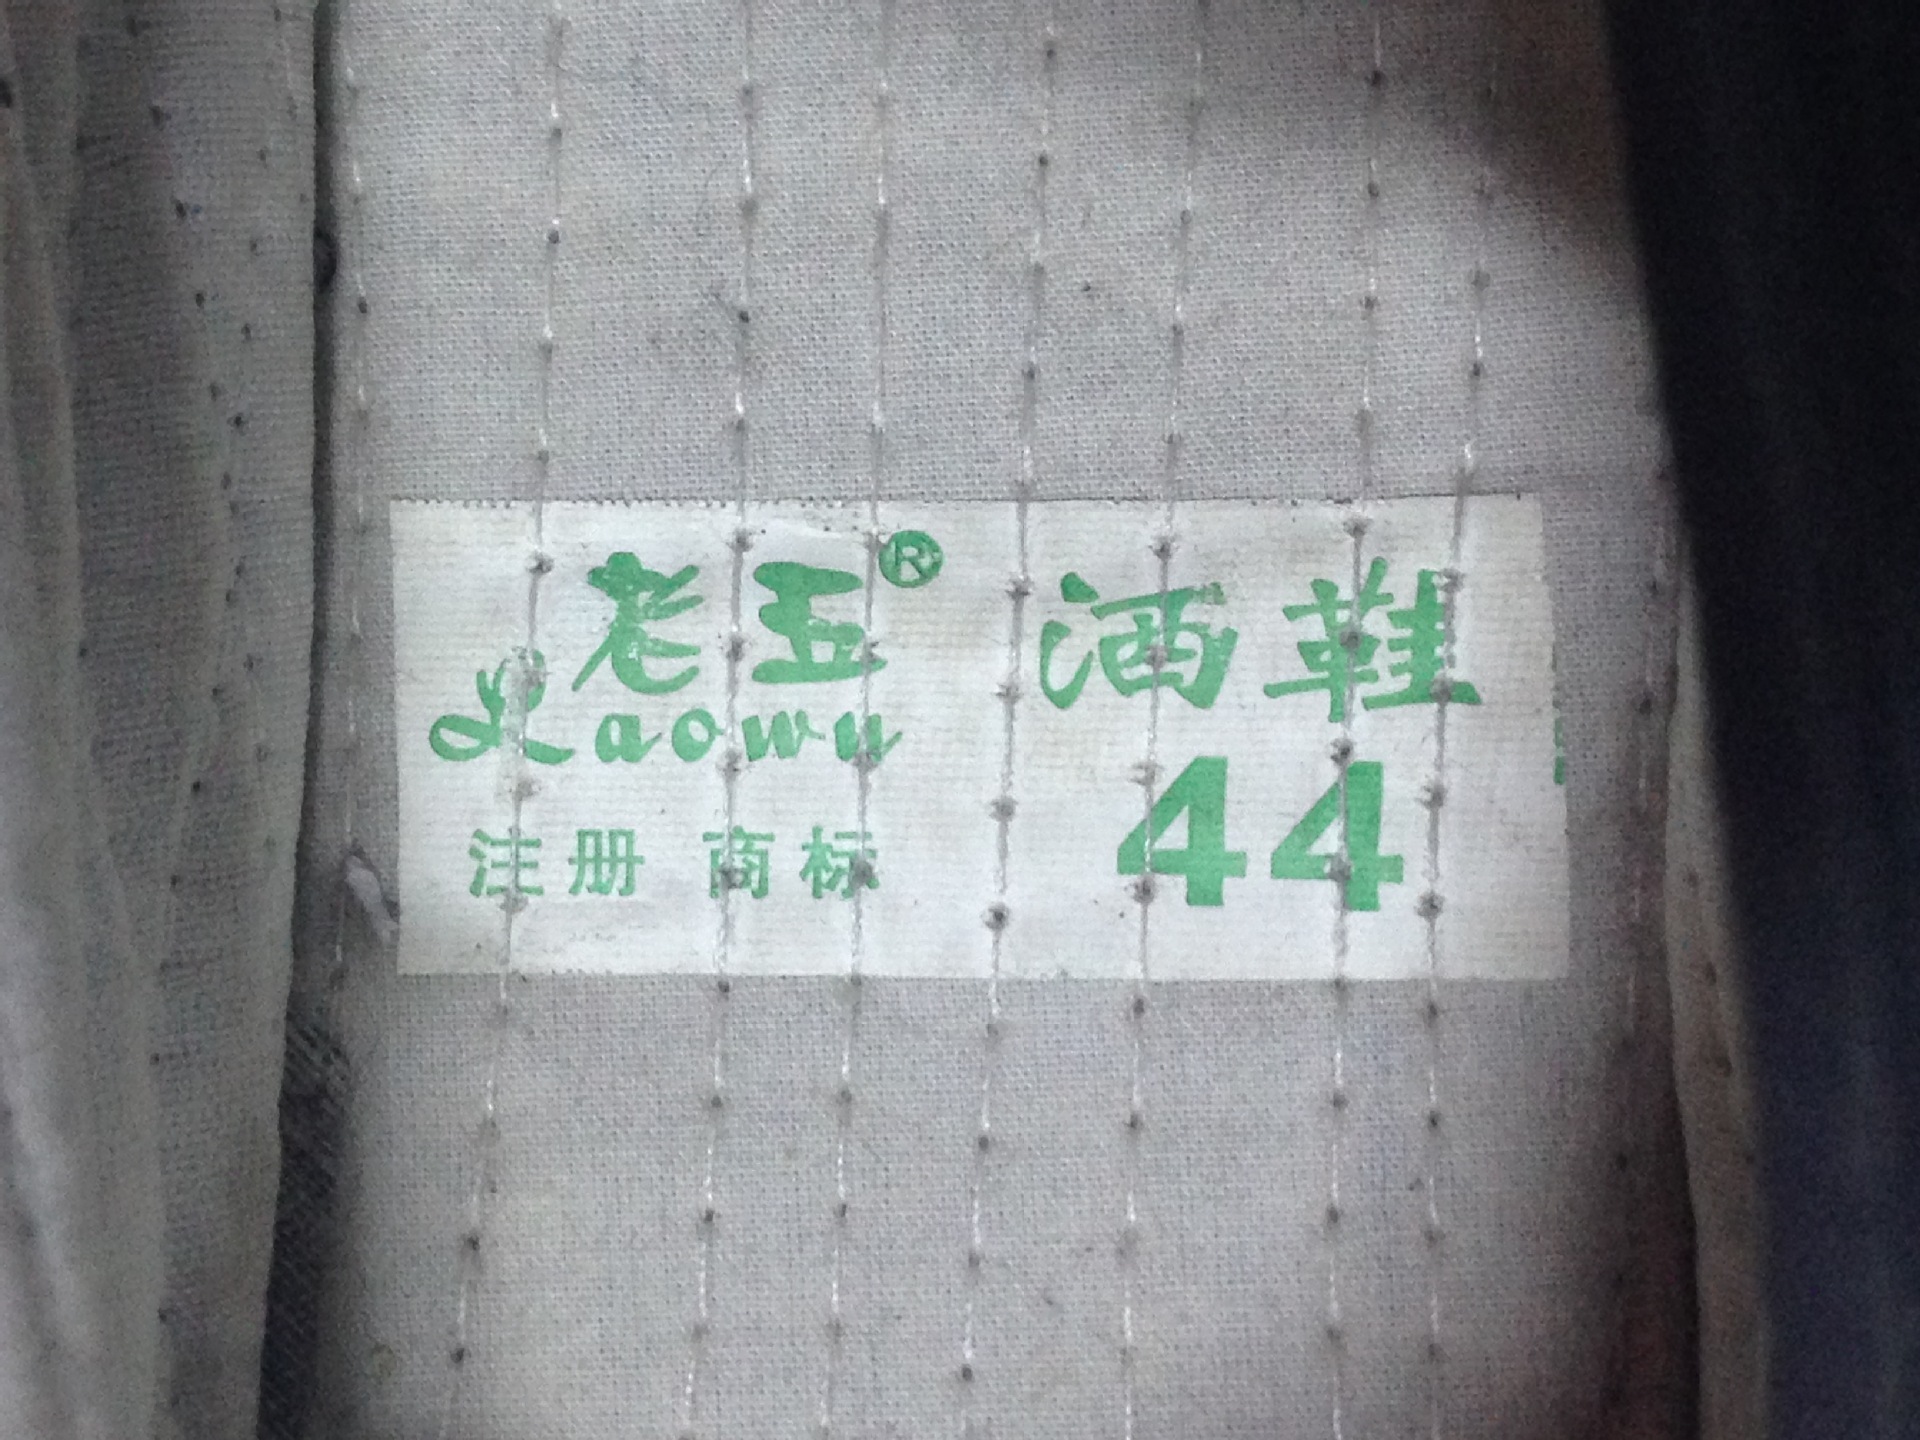 老五® 酒鞋
Laowu
注册 商标 44